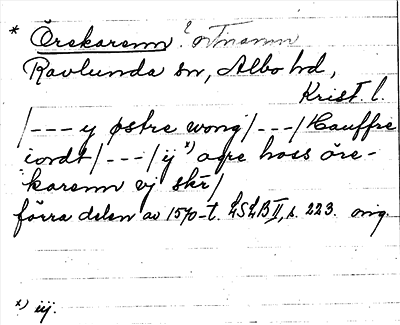 * Örekarenn ?
Ravlunda sn, Albo hd,
Krist l.
/--- y østre wong/---/ Hauffre
iordt/---/ij x) agre hoss öre-
karenn vj skr/
förra delen av 1570-t. LSLB II, s. 223. orig.
x) iij.